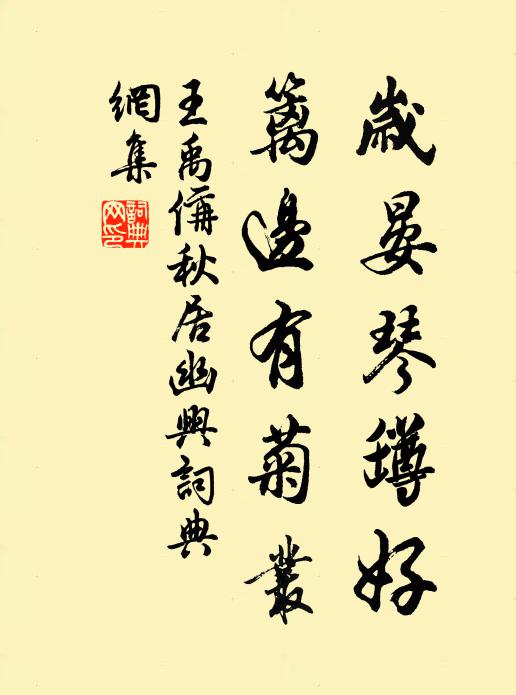 歲晏琴罇好
籬邊有菊叢
王禹偁秋居幽興詞典
網集
詞典
网印